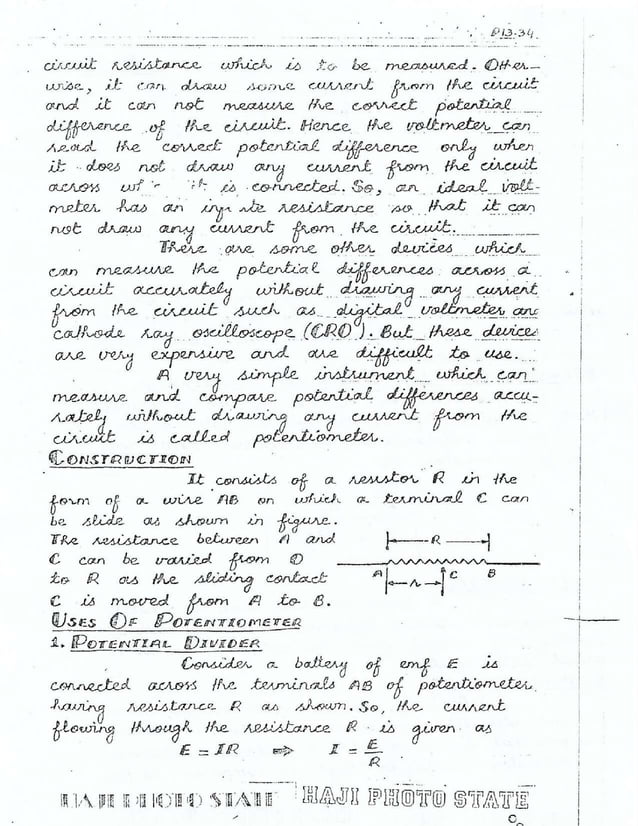 P13-34
circuit resistance which is to be measured. Other-
wise, it can draw some current from the circuit
and it can not measure the correct potential
difference of the circuit. Hence the voltmeter can
read the correct potential difference only when
it does not draw any current from the circuit
across it is connected. So, an ideal volt-
meter has an resistance so that it can
not draw any current from the circuit.
There are some other devices which
can measure the potential differences across a
circuit accurately without drawing any current
from the circuit such as digital voltmeter an
cathode ray oscilloscope (CRO). But these devices
are very expensive and are difficult to use.
A very simple instrument which can
measure and compare potential differences accu-
rately without drawing any current from the
circuit is called potentiometer.
CONSTRUCTION
It consists of a resistor R in the
form of a wire AB on which a terminal C can
be slide as shown in figure.
The resistance between A and
C can be varied from O
to R as the sliding contact
C is moved from A to B.
R
A C B
r
USES OF POTENTIOMETER
1. POTENTIAL DIVIDER
Consider a battery of emf E is
connected across the terminals AB of potentiometer
having resistance R as shown. So, the current
flowing through the resistance R is given as
E = IR ⇒ I = E/R
HAJI PHOTO STATE HAJI PHOTO STATE